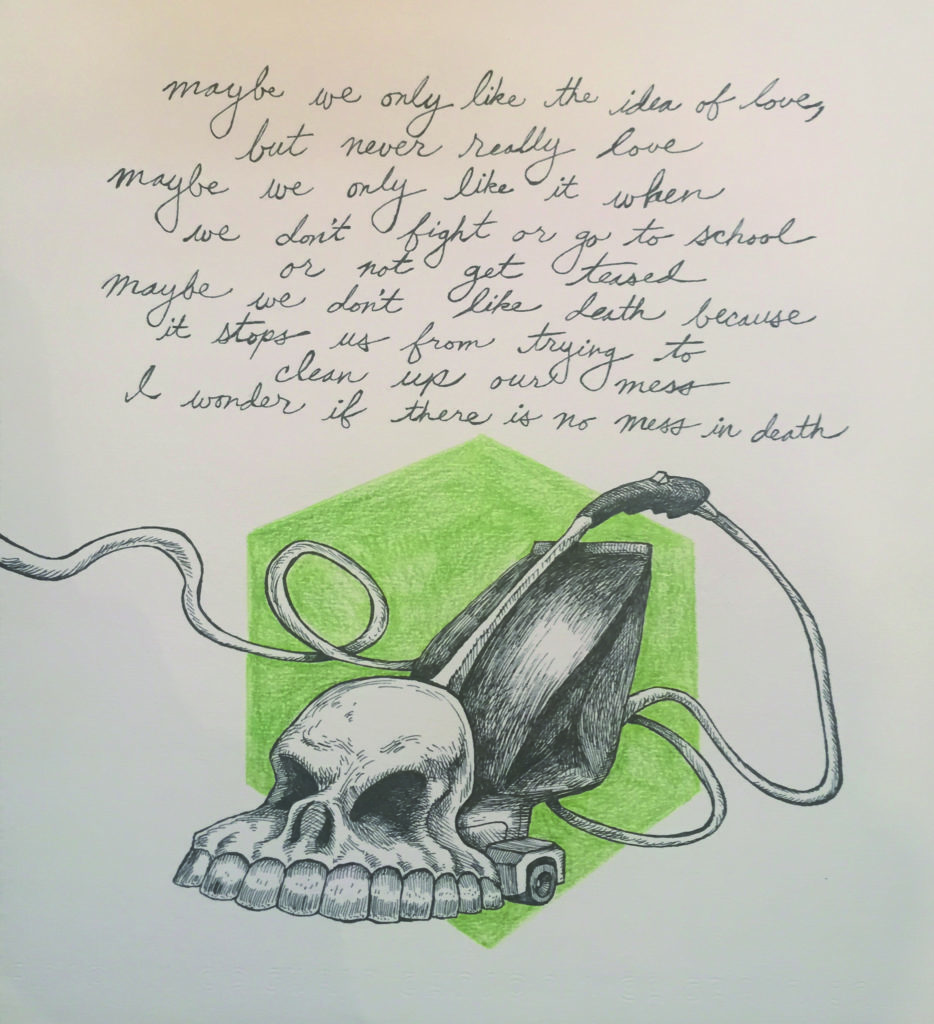 maybe we only like the idea of love,
but never really love
maybe we only like it when
we don't fight or go to school
or not get teased
maybe we don't like death because
it stops us from trying to
clean up our mess
I wonder if there is no mess in death